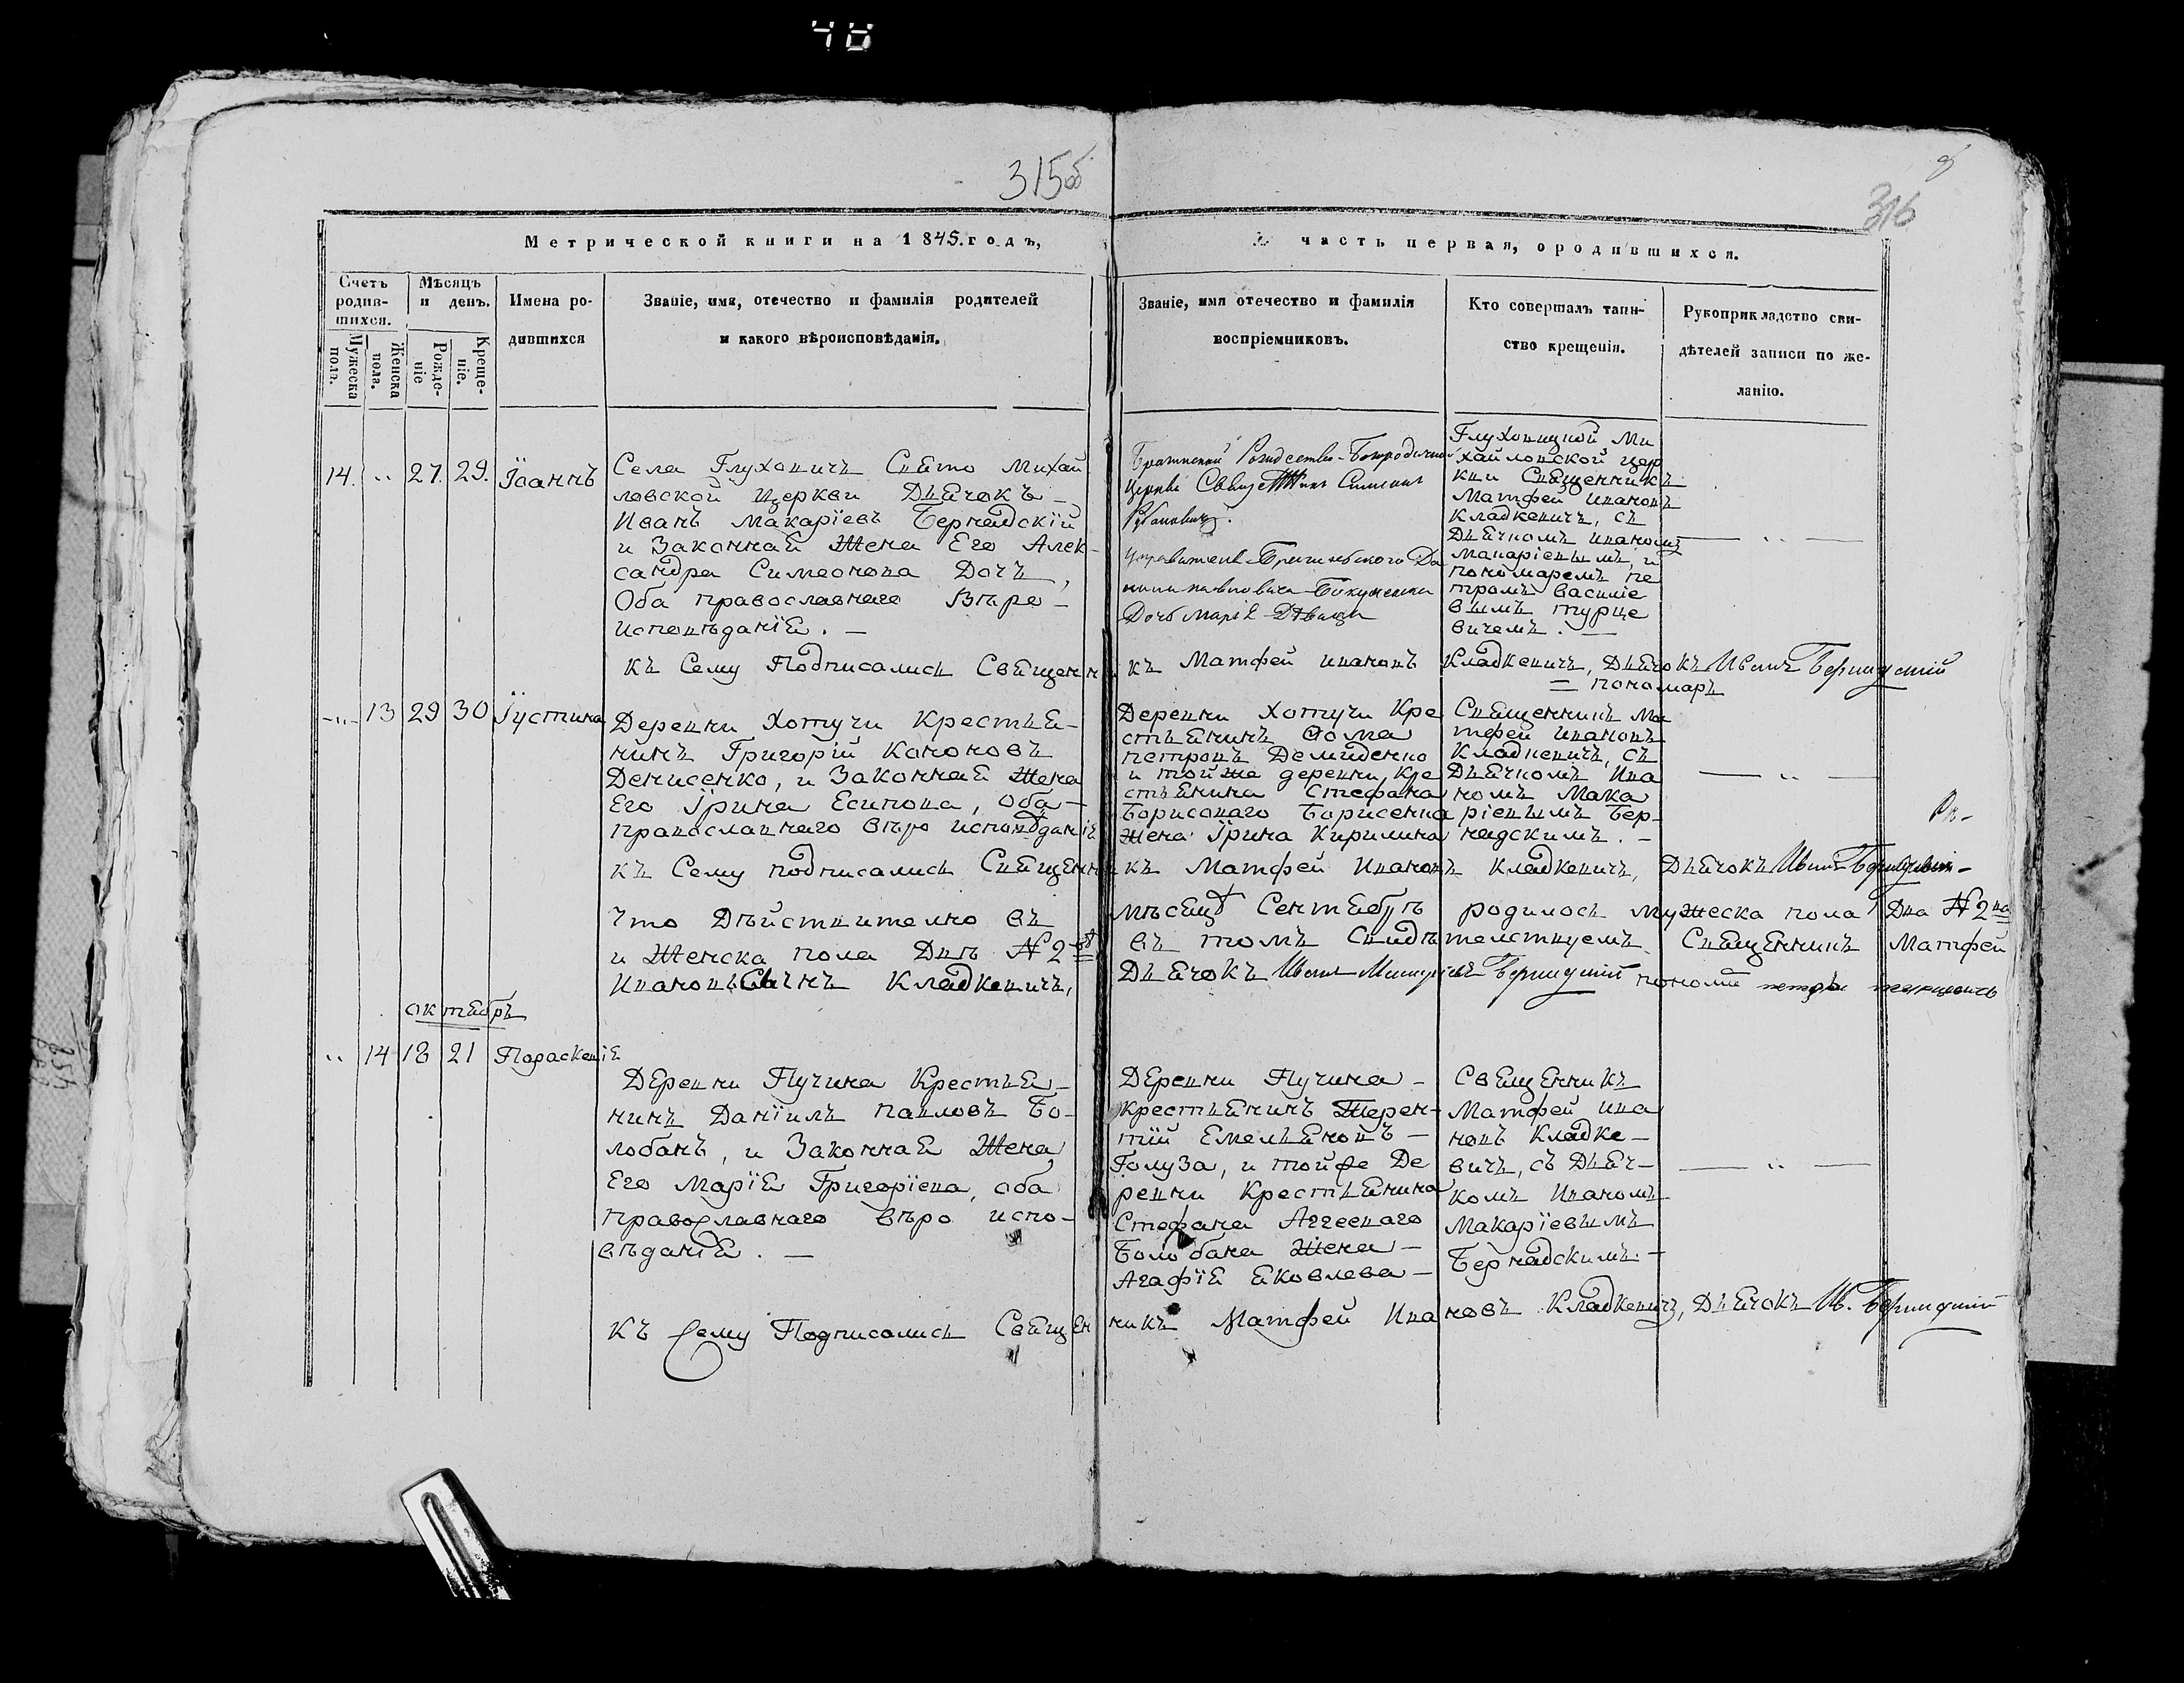 48
315об
316
Метрической книги на 1845. годъ,
часть первая, о родившихся.
Счетъ родив-
шихся.
Мужеска пола.
Женска пола.
Мѣсяцъ и день.
Рожде-
ніе
Креще-
ніе.
Имена ро-
дившихся
Званіе, имя, отечество и фамилія родителей
и какого вѣроисповѣданія.
Званіе, имя отечество и фамилія
воспріемниковъ.
Кто совершалъ таин-
ство крещенія.
Рукоприкладство сви-
дѣтелей записи по же-
ланію.
14. „ 27. 29. Іоаннъ
Села Глуховичъ Свято Михай
ловской Церкви Дьячокъ –
Иванъ Макаріевъ Бернадскій
и Законная Жена Его Алек-
сандра Симеонова Дочь,
Оба православнаго Вѣро-
исповѣданія. –
Рождество-Богородично
Церкви Симеонъ
Дочь Марія Дѣвица
Глуховицкой Ми
хайловской цер
кви Священникъ
Матфей Ивановъ
Кладкевичъ, съ
Дьячкомъ Иваномъ
Макаріевымъ, и
пономаремъ Пе
тромъ Василіе
вымъ Турце
вичемъ. –
— „ —
Къ Сему Подписались Священникъ Матфей Ивановъ Кладкевичъ, Дьячокъ Иванъ Бернадскій
= пономарь
-„- 13 29 30 Іустина
Деревни Хотучи Крестья-
нинъ Григорій Кононовъ
Денисенко, и Законная Жена
Его Ірина Есипова, Оба-
православнаго вѣро исповѣданія
Деревни Хотучи Кре
стьянинъ Фома
Петровъ Демиденко
и той же деревни, Кре
стьянина Стефана
Борисоваго Борисенка
Жена Ірина Кирилина
Священникъ Ма
тфей Ивановъ
Кладкевичъ, съ
Дьячкомъ Ива
номъ Мака
ріевымъ Бер-
надскимъ. –
— „ —
Къ Сему подписались Священникъ Матфей Ивановъ Кладкевичъ, Дьячокъ Иванъ Бернадскій
Что Дѣйствително въ мѣсяцѣ Сентябрѣ родилось мужеска пола Два № 2 ва
и Женска пола Двѣ № 2 вѣ въ томъ Свидѣтелствуемъ Священникъ Матфей
Ивановъ Сынъ Кладкевичъ, Дьячокъ Иванъ Макаріевъ Бернадскій Петръ Турцевичъ
октябрь
„ 14 18 21 Параскевія
Деревни Пучина Крестья-
нинъ Даніилъ Павловъ Бо-
лобанъ, и Законная Жена,
Его Марія Григоріева, оба
православнаго вѣро испо-
вѣданія. –
Деревни Пучина –
Крестьянинъ Терен-
тій Емельяновъ –
Голуза, и тойже Де
ревни Крестьянина
Стефана Аггееваго
Болобана Жена –
Агафія Яковлева –
Священникъ
Матфей Ива
новъ Кладке-
вичъ, съ Дьяч-
комъ Иваномъ
Макаріевымъ
Бернадскимъ. –
— „ —
Къ Сему Подписались Священникъ Матфей Ивановъ Кладкевичъ, Дьячокъ Ив. Бернадскій